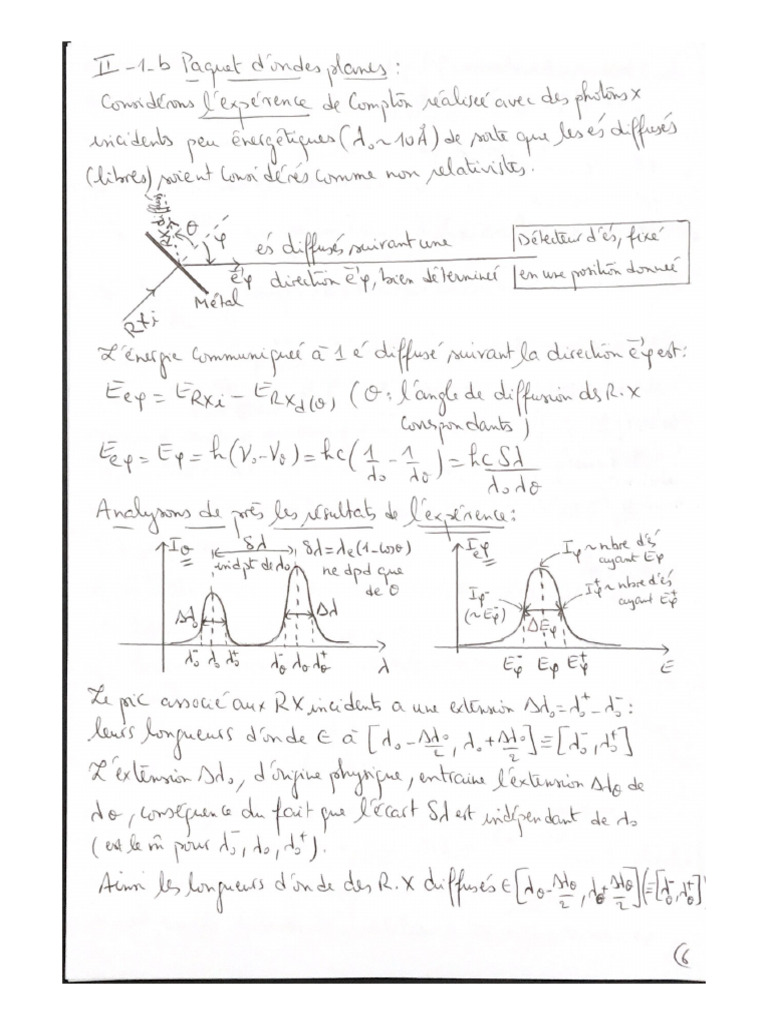 II-1-b Paquet d'ondes planes :
Considérons l'expérience de Compton réalisée avec des photons X
incidents peu énergétiques (λ₀ ~ 10 Å) de sorte que les és diffusés
(libres) soient considérés comme non relativistes.
θ φ
és diffusés suivant une
Détecteur d'és, fixé
e⃗'φ direction e⃗'φ, bien déterminée
en une position donnée
Métal
RXi
L'énergie communiquée à 1 é diffusé suivant la direction e⃗'φ est :
Eeφ = ERXi - ERXd(θ) (θ : l'angle de diffusion ds R.X
correspondants)
Eeφ = Eφ = h(ν₀-νθ) = hc(1/λ₀ - 1/λθ) = hcδλ/λ₀λθ
Analysons de près les résultats de l'expérience :
Iθ δλ δλ = λe(1-cosθ)
indpt de λ₀ ne dpd que
de θ
Δλ₀ Δλ
λ₀⁻ λ₀ λ₀⁺ λθ⁻ λθ λθ⁺ λ
Ieφ Iφ ~ nbre d'és
ayant Eφ
Iφ⁺ ~ nbre d'és
ayant Eφ⁺
Iφ⁻
(~ Eφ⁻)
ΔEφ
Eφ⁻ Eφ Eφ⁺ E
Le pic associé aux RX incidents a une extension Δλ₀ = λ₀⁺ - λ₀⁻ :
leurs longueurs d'onde ∈ à [λ₀ - Δλ₀/2, λ₀ + Δλ₀/2] ≡ [λ₀⁻, λ₀⁺]
L'extension Δλ₀, d'origine physique, entraine l'extension Δλθ de
λθ, conséquence du fait que l'écart δλ est indépendant de λ₀
(est le m̂ pour λ₀⁻, λ₀, λ₀⁺).
Ainsi les longueurs d'onde des R.X diffusés ∈ [λθ - Δλθ/2, λθ + Δλθ/2] (≡ [λθ⁻, λθ⁺]
(6